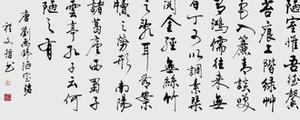 吾德馨
苔痕上階綠草
色入簾青談笑
有鴻儒往來無
白丁可以調素琴
閱金經無絲竹
之亂耳無案
牘之勞形南陽
諸葛廬西蜀子
雲亭孔子云何
陋之有
唐劉禹錫陋室銘